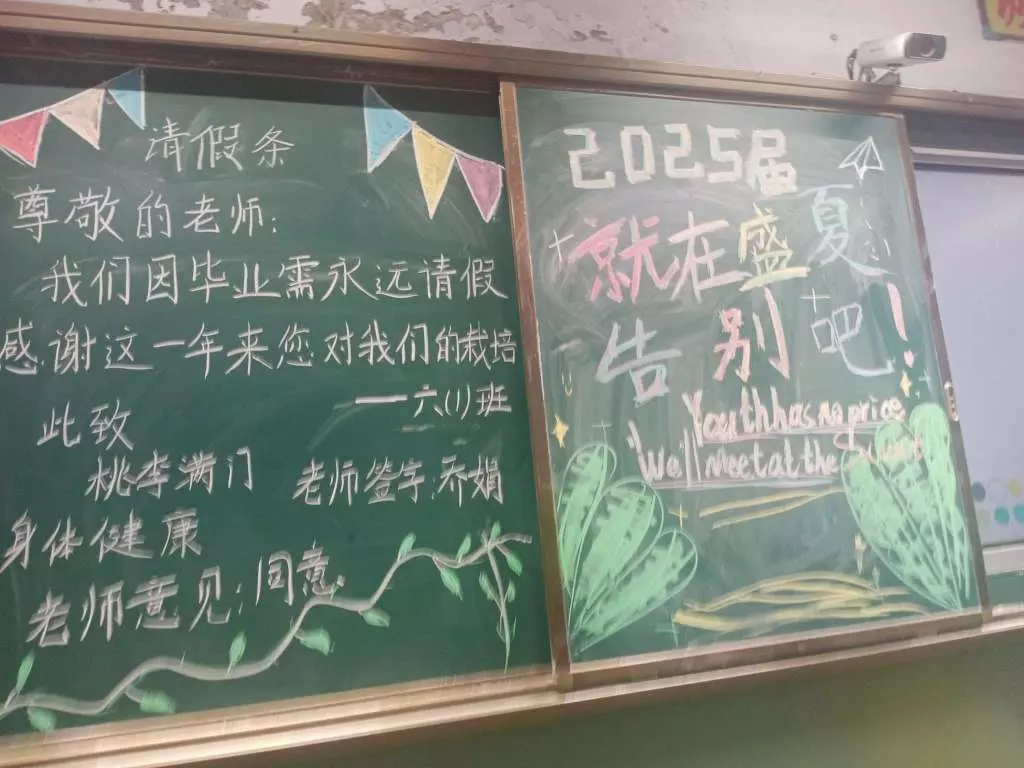 请假条
尊敬的老师:
我们因毕业需永远请假
感谢这一年来您对我们的栽培
——六(1)班
此致
桃李满门 老师签字:乔娟
身体健康
老师意见:同意
2025届
就在盛夏
告别吧!
Youth has no price
We'll Meet at the